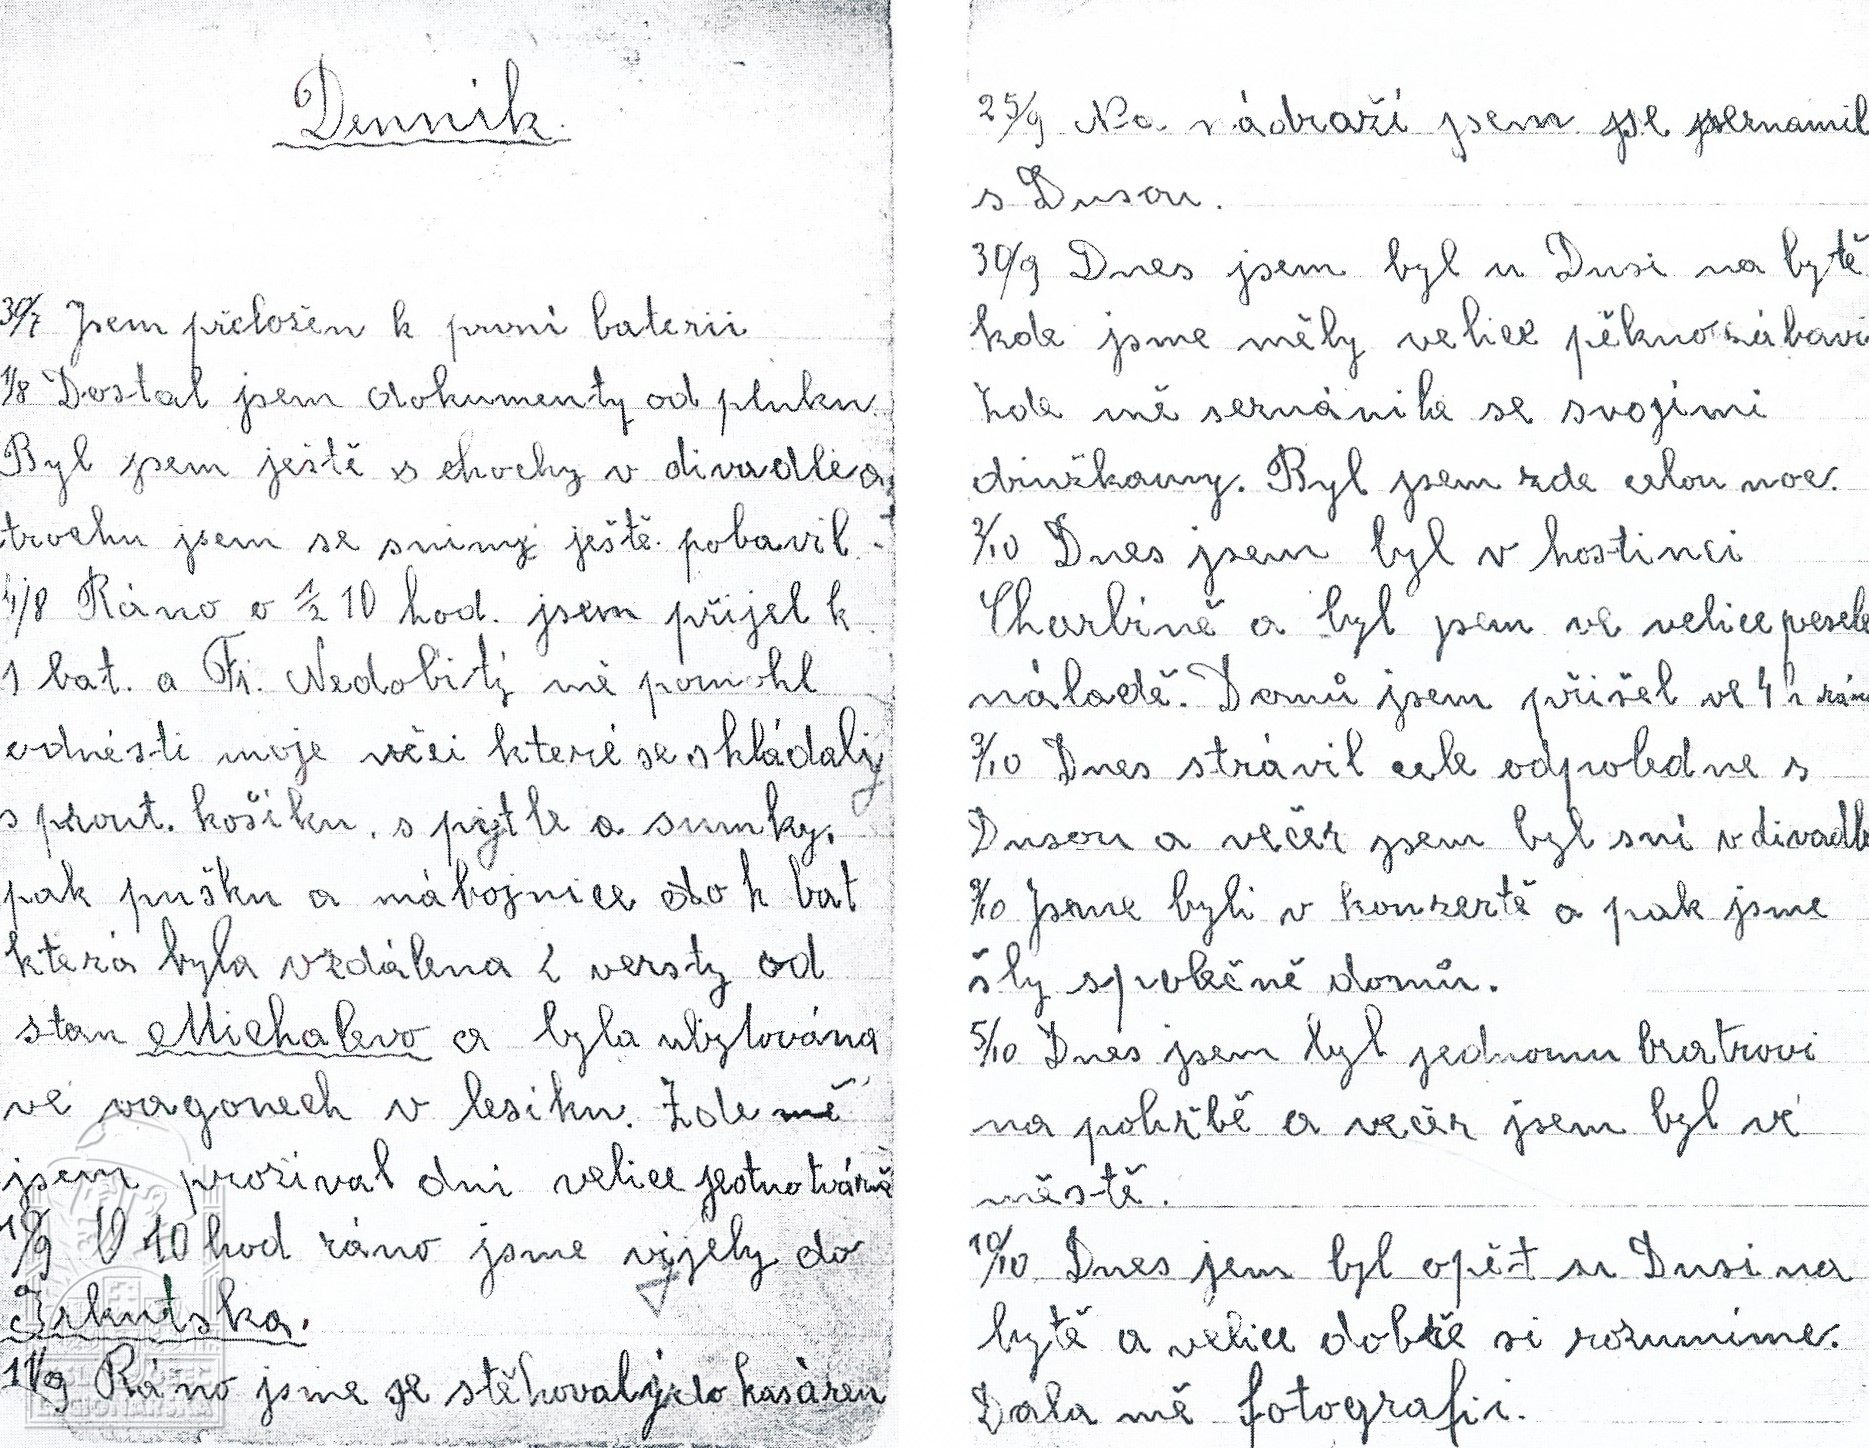 Dennik.
30/7 Jsem přeložen k první baterii
1/8 Dostal jsem dokumenty od pluku.
Byl jsem ještě s chochy v divadle a
trochu jsem se snimy ještě pobavil.
4/8 Ráno o ½ 10 hod. jsem přijel k
1 bat. a Fr. Nedobitý mě pomohl
odnésti moje věci které se skládaly
s prout. košiku, s pytle a sumky,
pak pušku a nábojnice do k bat
která byla vzdálena 2 versty od
stan Michalevo a byla ubytována
ve vagonech v lesiku. Zde
jsem prožival dni velice jednotvárně
10/9 V 10 hod ráno jsme vyjely do
Irkutska.
11/9 Ráno jsme se stěhovaly do kasáren
25/9 Na nádraží jsem se seznamil
s Dusou.
30/9 Dnes jsem byl u Dusi na bytě
kde jsme měly velice pěkno zábavi
Zde mě seznánila se svojimi
družkamy. Byl jsem zde celou noc.
2/10 Dnes jsem byl v hostinci
Charbině a byl jsem ve velice vesele
náladě. Domů jsem přišel ve 4 h ráno
3/10 Dnes strávil cele odpoledne s
Dusou a večer jsem byl sní v divadle
9/10 Jsme byli v konzertě a pak jsme
šly společně domů.
5/10 Dnes jsem byl jednomu bratrovi
na pohřbě a večer jsem byl ve
městě.
10/10 Dnes jem byl opět u Dusi na
bytě a velice dobře si rozumime.
Dala mě fotografii.